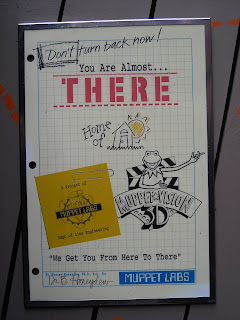 Don't turn back now!
You Are Almost...
THERE
Home
of
A Project of
MUPPET LABS
MUPPET*VISION
3D
"We Get You From Here To There"
MUPPET LABS
Dr. B. Honeydew